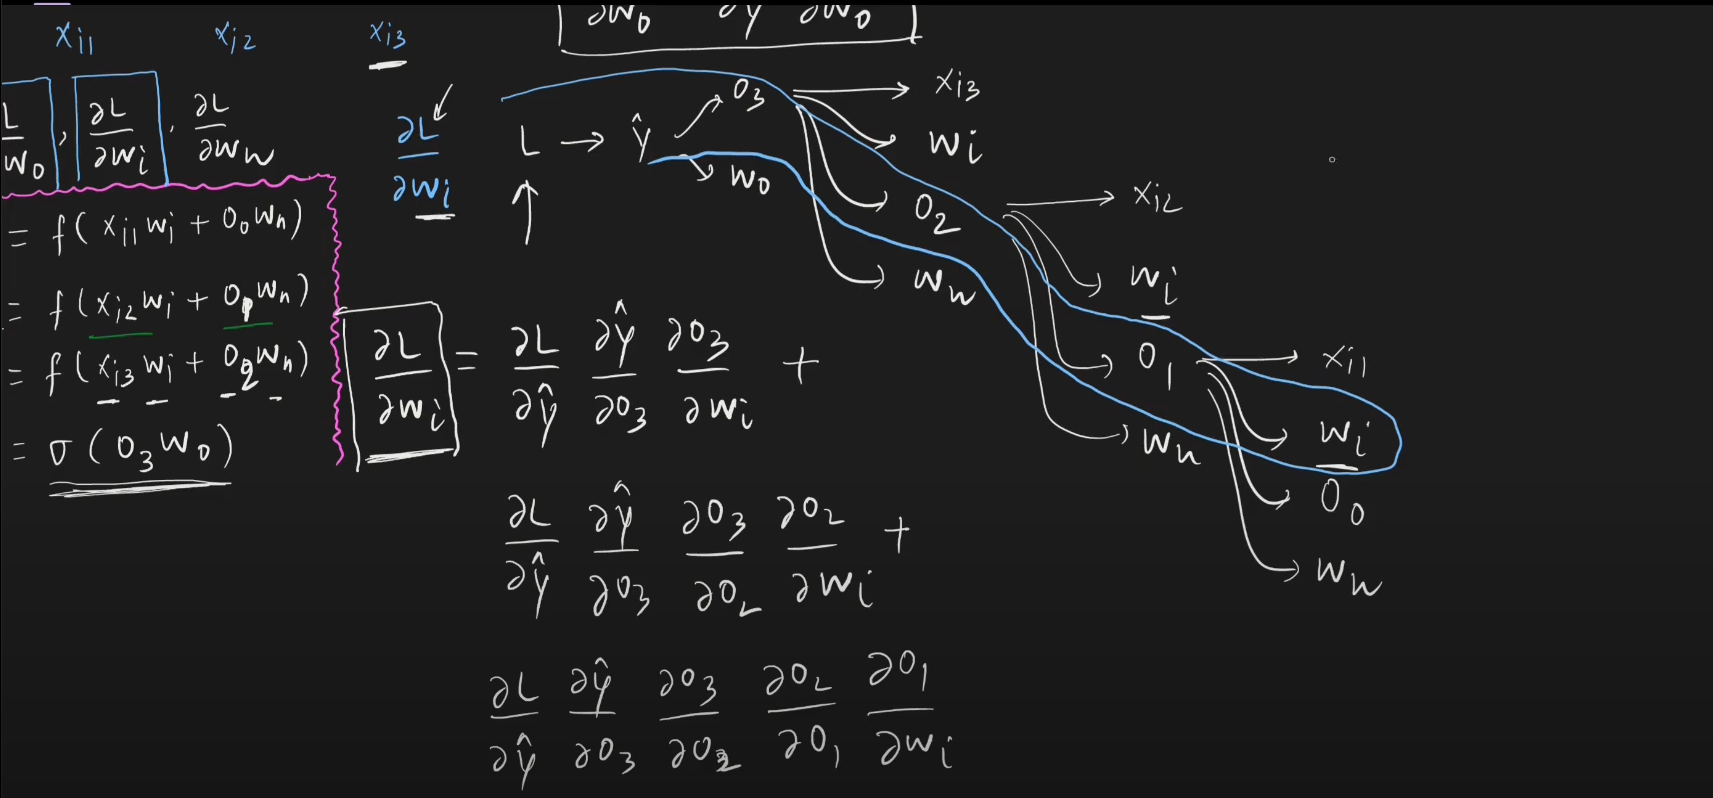 ∂W₀ ∂ŷ ∂W₀
xᵢ₁ xᵢ₂ xᵢ₃
L/W₀ , ∂L/∂Wᵢ , ∂L/∂Wₕ
= f( xᵢ₁ Wᵢ + O₀ Wₕ)
= f( xᵢ₂ Wᵢ + O₁ Wₕ)
= f( xᵢ₃ Wᵢ + O₂ Wₕ)
= σ ( O₃ W₀ )
∂L/∂Wᵢ
L → Ŷ
O₃ → xᵢ₃
Wᵢ
W₀
O₂ → xᵢ₂
Wₕ
Wᵢ
O₁ → xᵢ₁
Wₕ
Wᵢ
O₀
Wₕ
∂L/∂Wᵢ = ∂L/∂Ŷ ∂Ŷ/∂O₃ ∂O₃/∂Wᵢ +
∂L/∂Ŷ ∂Ŷ/∂O₃ ∂O₃/∂O₂ ∂O₂/∂Wᵢ +
∂L/∂Ŷ ∂Ŷ/∂O₃ ∂O₃/∂O₂ ∂O₂/∂O₁ ∂O₁/∂Wᵢ